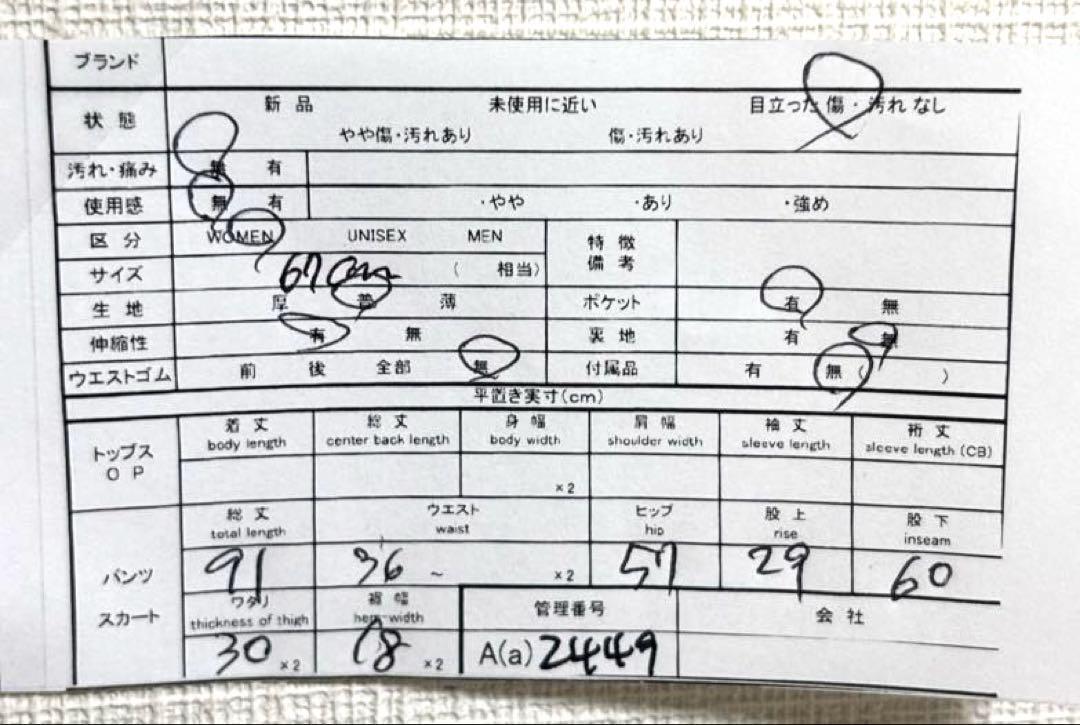 ブランド
状態 新品 未使用に近い 目立った傷・汚れなし
やや傷・汚れあり 傷・汚れあり
汚れ・痛み 無 有
使用感 無 有 ・やや ・あり ・強め
区分 WOMEN UNISEX MEN 特徴
備考
サイズ 67cm ( 相当)
生地 厚 普 薄 ポケット 有 無
伸縮性 有 無 裏地 有 無
ウエストゴム 前 後 全部 無 付属品 有 無 ( )
平置き実寸(cm)
トップス
OP
着丈 総丈 身幅 肩幅 袖丈 裄丈
body length center back length body width shoulder width sleeve length sleeve length (CB)
×2
パンツ
スカート
総丈 ウエスト ヒップ 股上 股下
total length waist hip rise inseam
91 36 ~ ×2 57 29 60
ワタリ 裾幅 管理番号 会社
thickness of thigh hem width
30 ×2 18 ×2 A(a) 2449